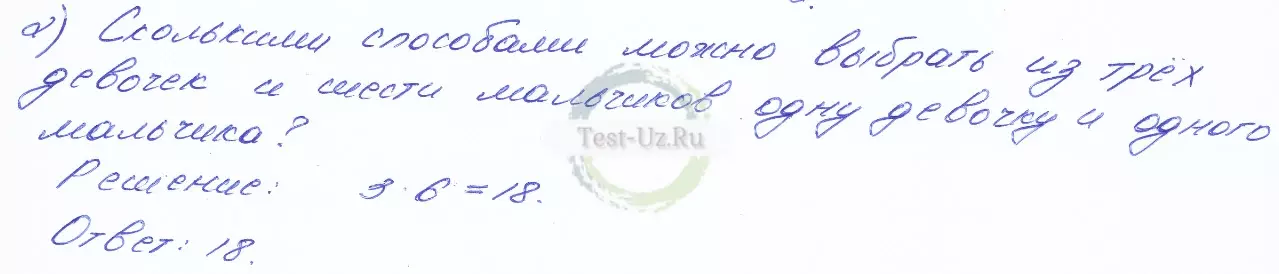 а) Сколькими способами можно выбрать из трёх
девочек и шести мальчиков одну девочку и одного
мальчика?
Test-Uz.Ru
Решение: 3·6=18.
Ответ: 18.